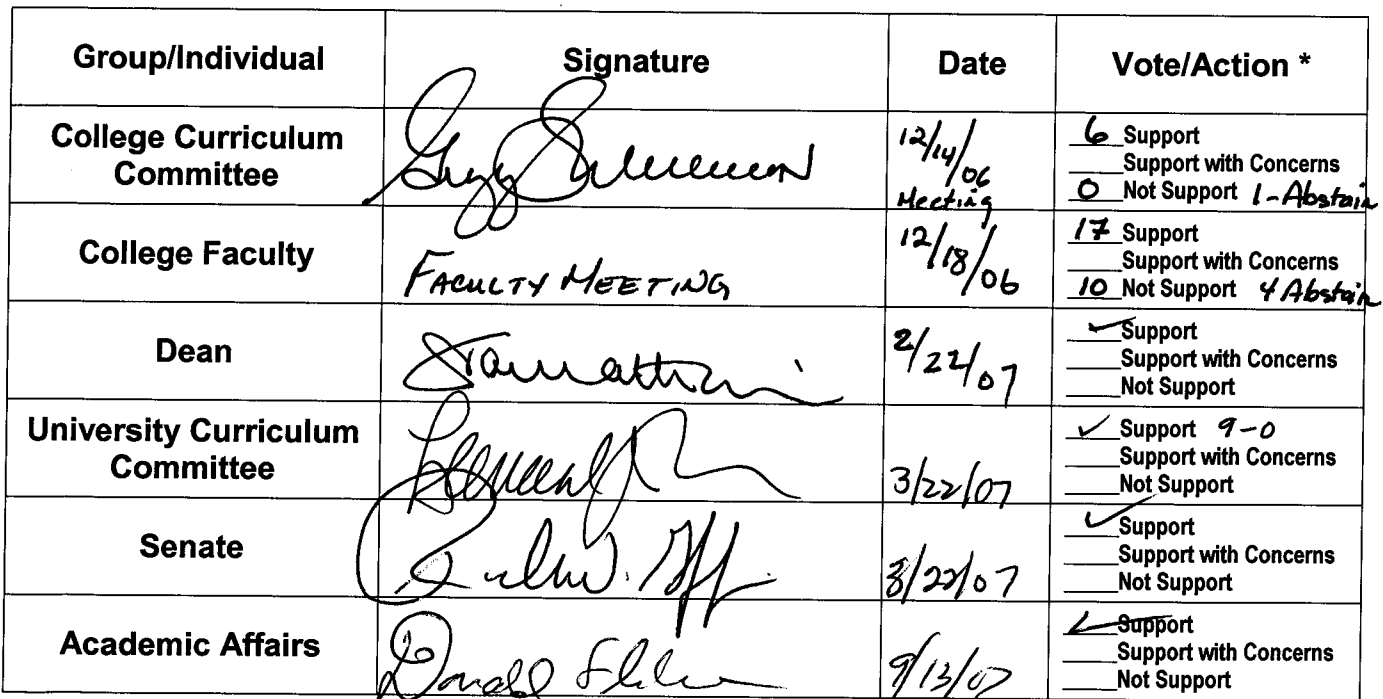 Group/Individual Signature Date Vote/Action *
College Curriculum Committee 12/14/06 Meeting
6 Support
Support with Concerns
0 Not Support 1-Abstain
College Faculty FACULTY MEETING 12/18/06
17 Support
Support with Concerns
10 Not Support 4 Abstain
Dean 2/22/07
✓ Support
Support with Concerns
Not Support
University Curriculum Committee 3/22/07
✓ Support 9-0
Support with Concerns
Not Support
Senate 3/22/07
✓ Support
Support with Concerns
Not Support
Academic Affairs Donald 9/13/07
✓ Support
Support with Concerns
Not Support